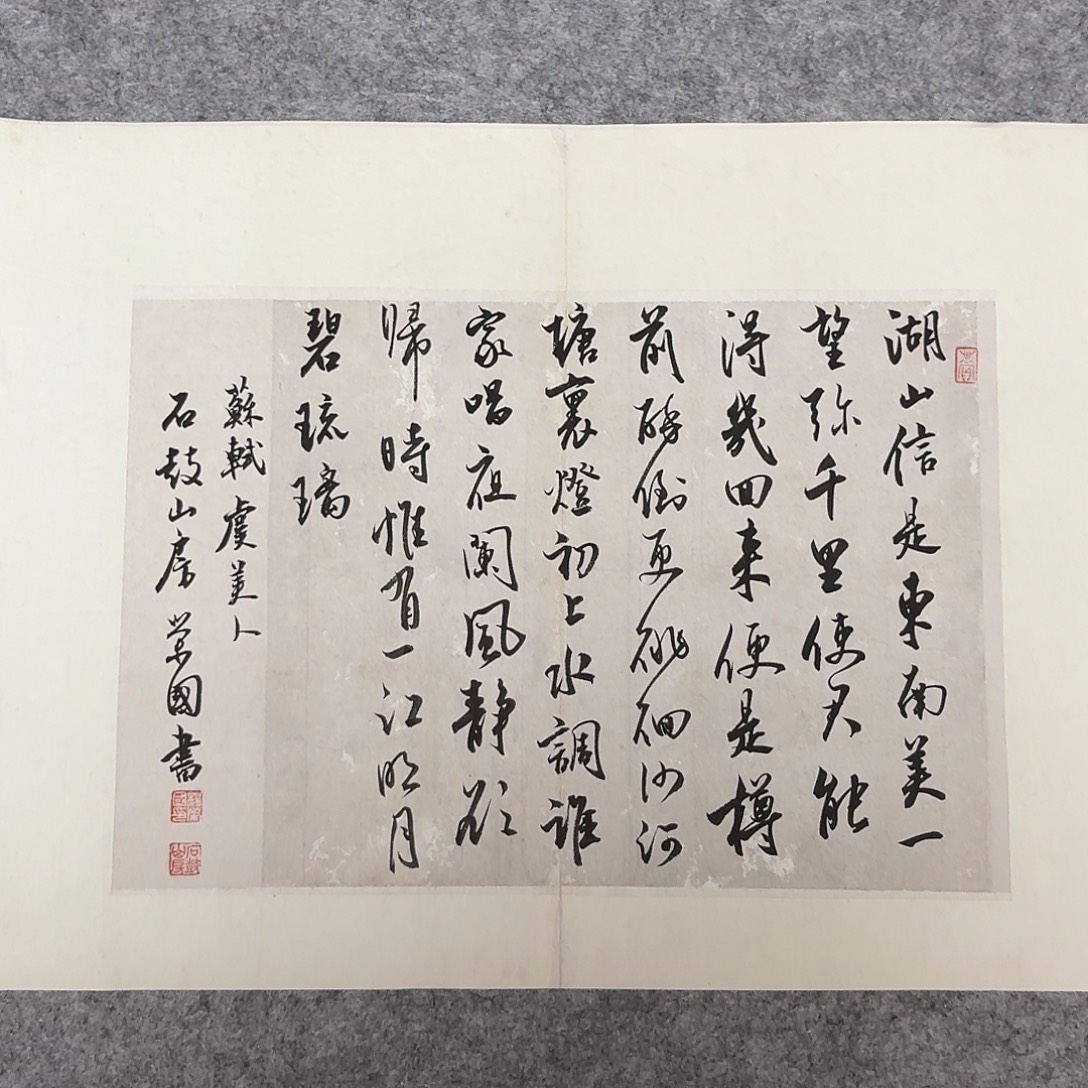 湖山信是東南美一
望弥千里使君能
得幾回来便是樽
前醉倒更徘徊沙河
塘裏燈初上水調誰
家唱夜闌風静欲
帰時惟有一江明月
碧琉璃
蘇軾 虞美人
石鼓山房 榮國書
石鼓山房